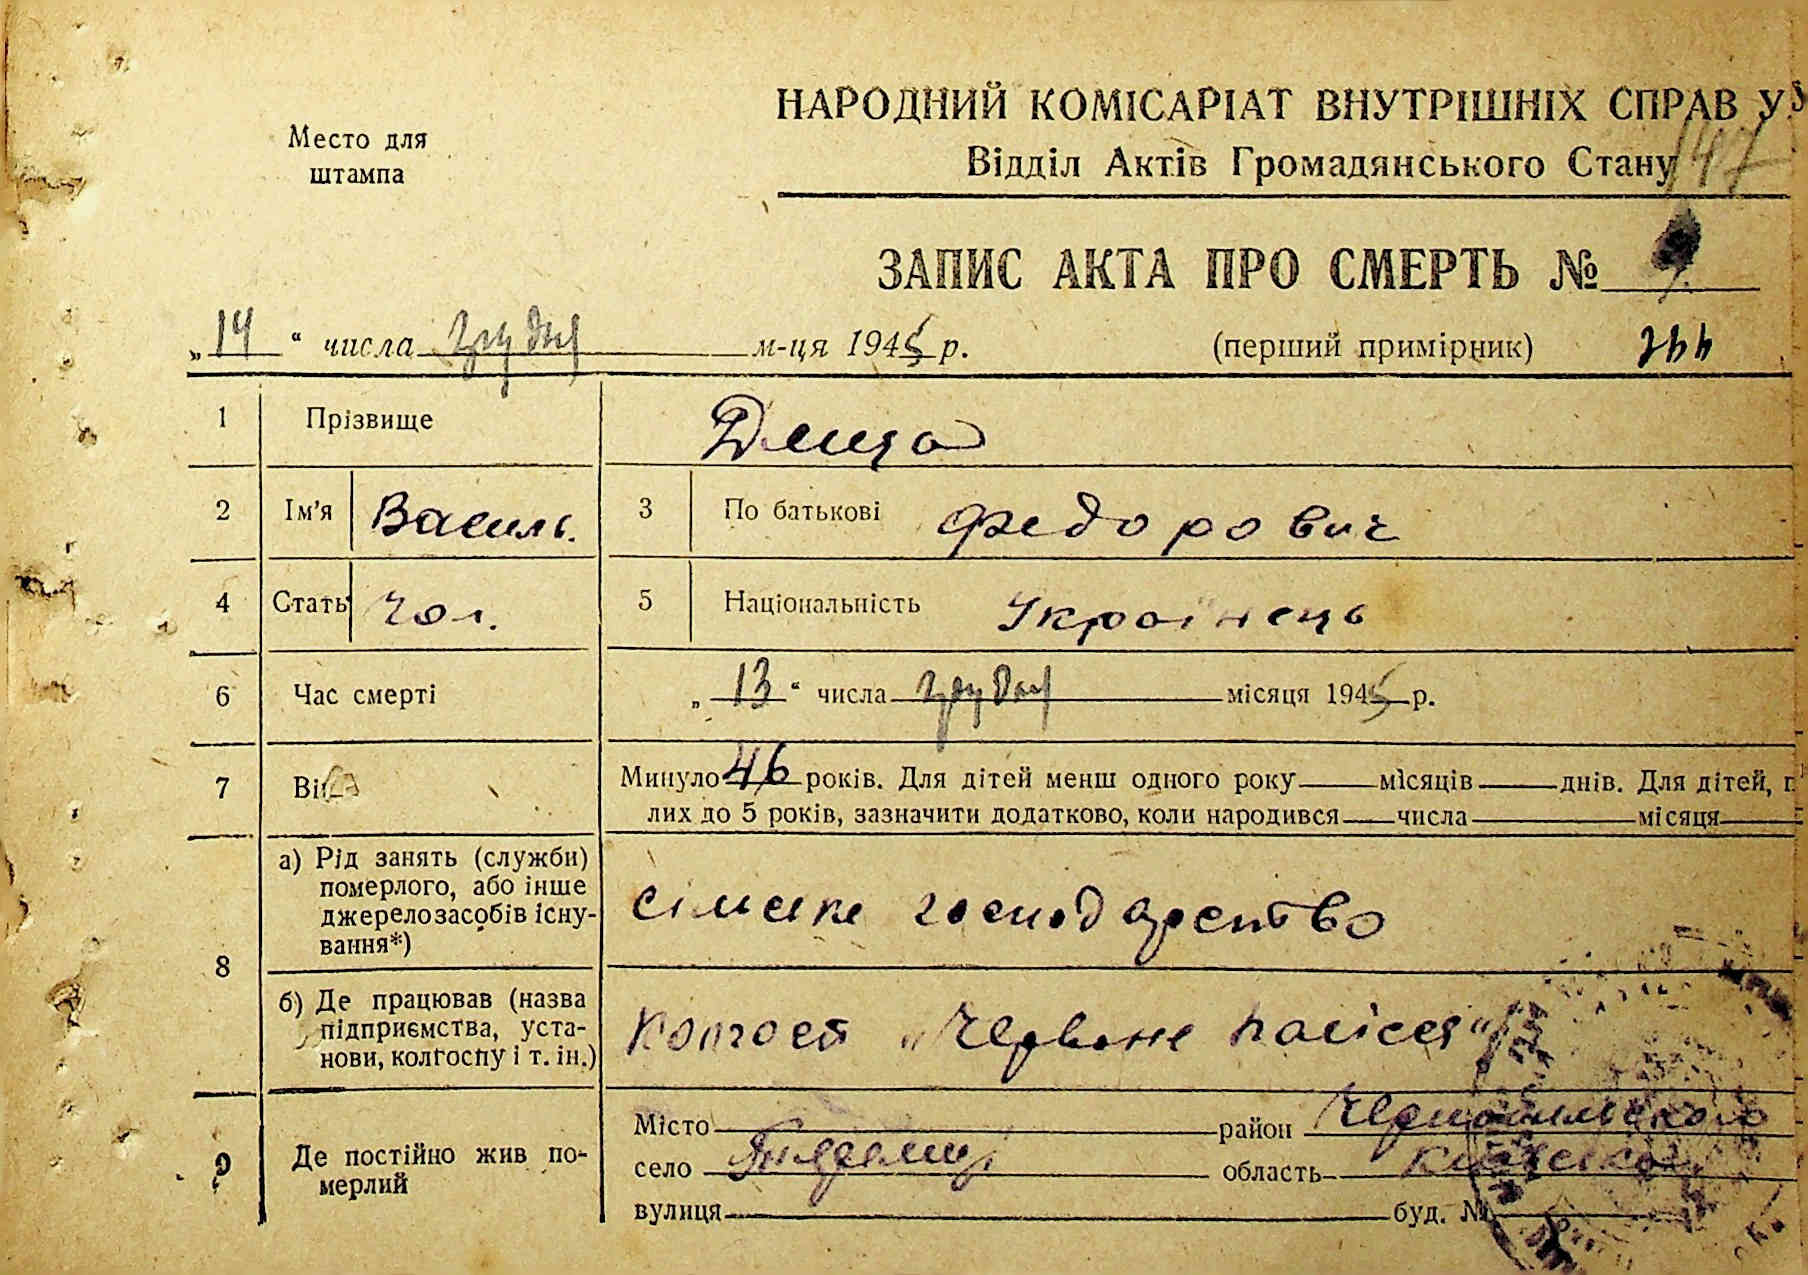 НАРОДНИЙ КОМІСАРІАТ ВНУТРІШНІХ СПРАВ У
Место для
штампа
Відділ Актів Громадянського Стану
147
ЗАПИС АКТА ПРО СМЕРТЬ №
„14“ числа грудня м-ця 1945 р. (перший примірник)
1 Прізвище
2 Ім'я Василь. 3 По батькові Федорович
4 Стать чол. 5 Національність Українець
6 Час смерті „13“ числа грудня місяця 1945 р.
7 Минуло 46 років. Для дітей менш одного року місяців днів. Для дітей,
лих до 5 років, зазначити додатково, коли народився числа місяця
8 а) Рід занять (служби)
померлого, або інше
джерело засобів існу-
вання*)
сільське господарство
б) Де працював (назва
підприємства, уста-
нови, колгоспу і т. ін.)
Колгосп „Червоне Полісся“
9 Де постійно жив по-
мерлий
Місто район Чорнобильського
село область Київської
вулиця буд. №